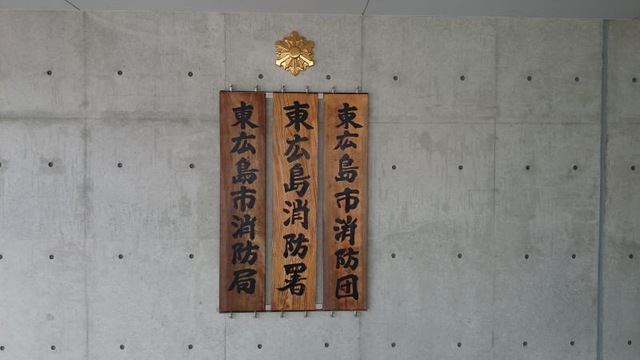 東広島市消防団
東広島消防署
東広島市消防局